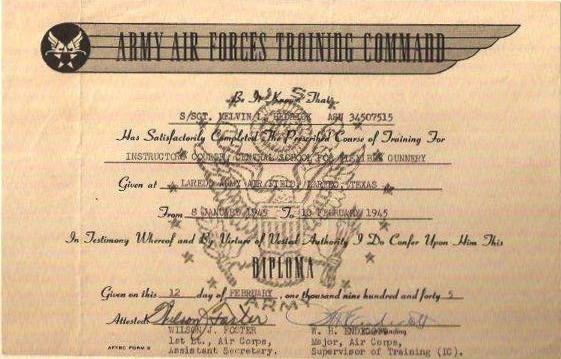 ARMY AIR FORCES TRAINING COMMAND
U S
Be It Known That
S/SGT. MELVIN L. ASN 34507515
Has Satisfactorily Completed The Prescribed Course of Training For
INSTRUCTORS COURSE, CENTRAL SCHOOL FOR FLEXIBLE GUNNERY
Given at LAREDO ARMY AIR FIELD, LAREDO, TEXAS
From 8 JANUARY 1945 To 10 FEBRUARY 1945
In Testimony Whereof and By Virtue of Vested Authority I Do Confer Upon Him This
DIPLOMA
Given on this 12 day of FEBRUARY, one thousand nine hundred and forty 5
ARMY
Attested: Wilson J Foster
WILSON J. FOSTER W. H. ENDICOTT
1st Lt., Air Corps, Major, Air Corps,
Assistant Secretary. Supervisor of Training (IC).
AFTRC FORM